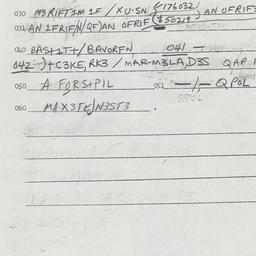 030 M3RIFT1M 1F / XU.SN (176032) AN OFRIF3
031 AN 1FRIFN/QF)AN OFRIF ($50219)
040 BAS+1T+/BAVORFN 041 —
042 -)+C3KE, RK3 / MAR-M3LA,D3S QAP
050 A FORS+PIL 052 —/— QPOL
060 MAX3TE)N3ST3 .